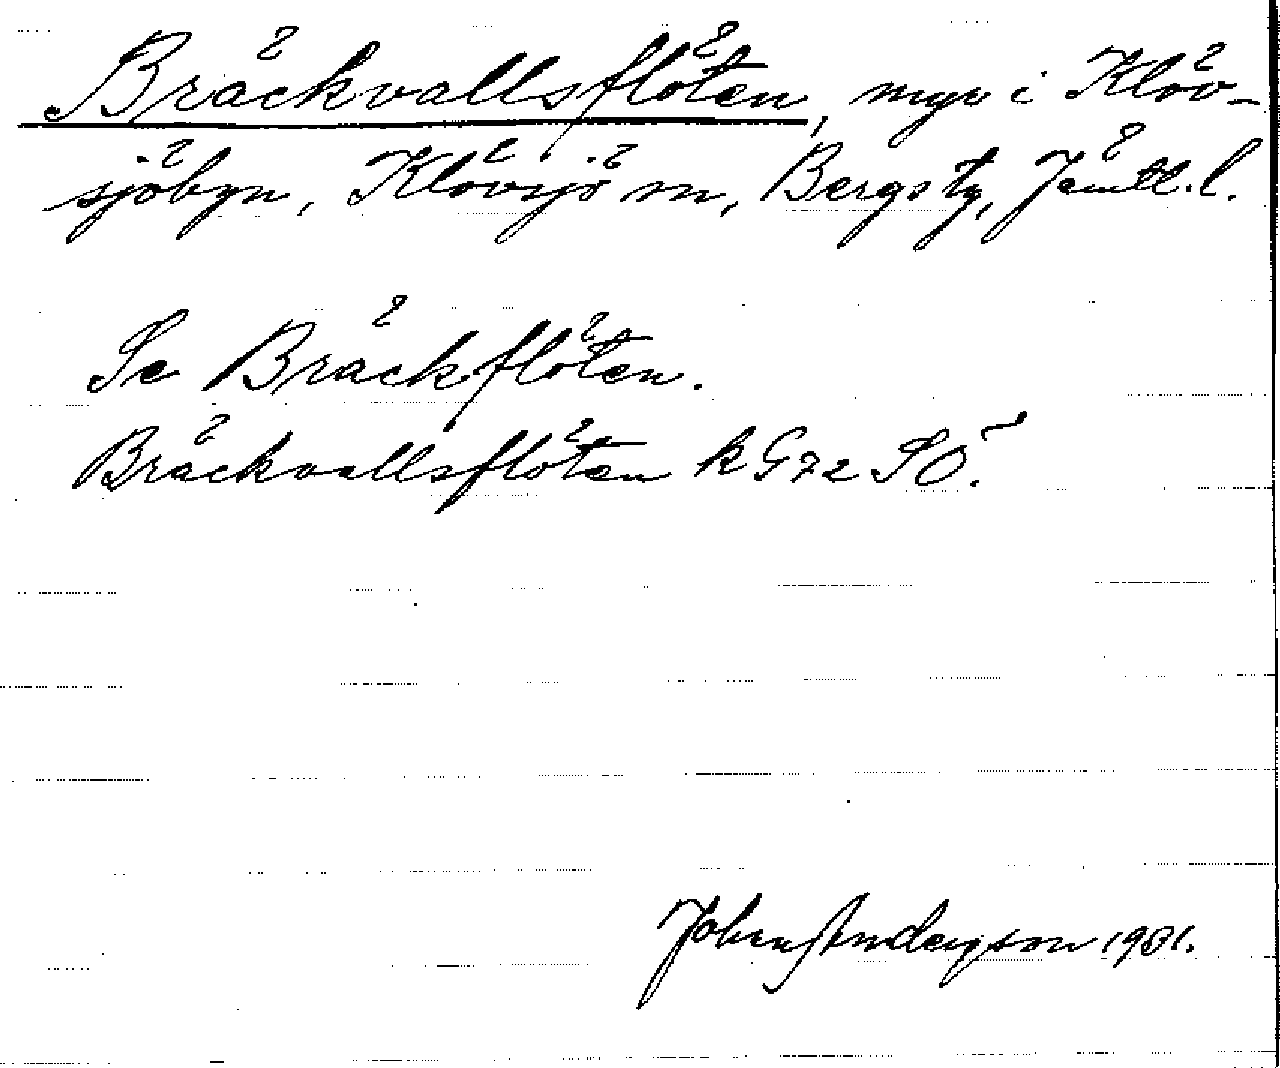 Bräckvallsflöten, myr i Klöv-
sjöbyn, Klövsjö sn, Bergs tg, Jämtl. l.
Se Bräckflöten.
Bräckvallsflöten k G72 SÖ.
Johan Anderson 1901.